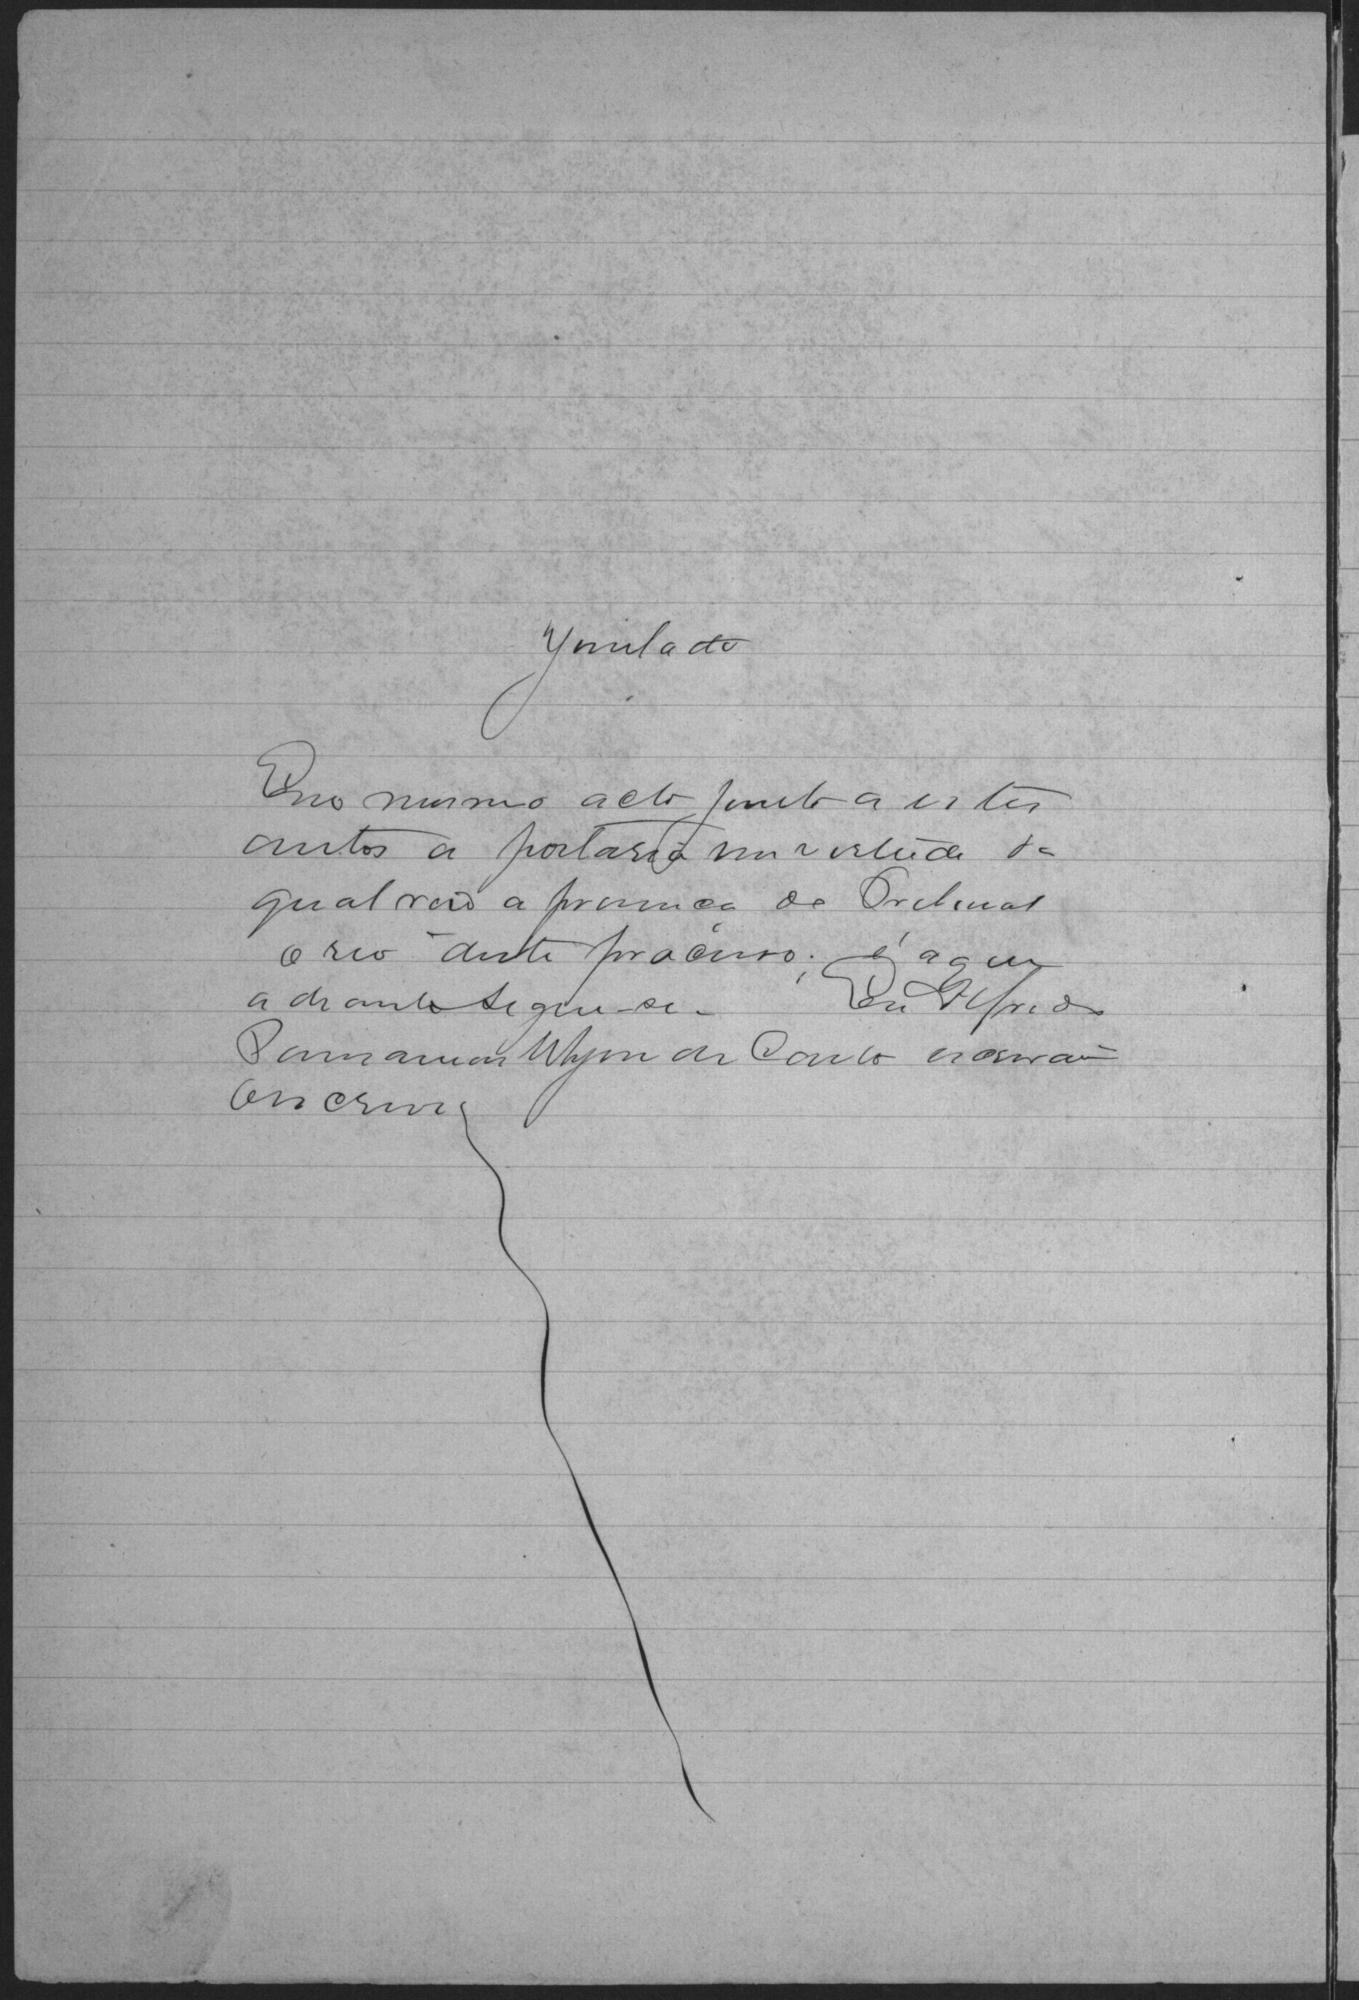 Juntada
E no mesmo acto junto a estes
autos a portaria em virtude da
qual veio a presença do Tribunal
o reo deste processo; é a que
adiante segue-se. Eu Alfredo
de Couto escrivão
escrevi